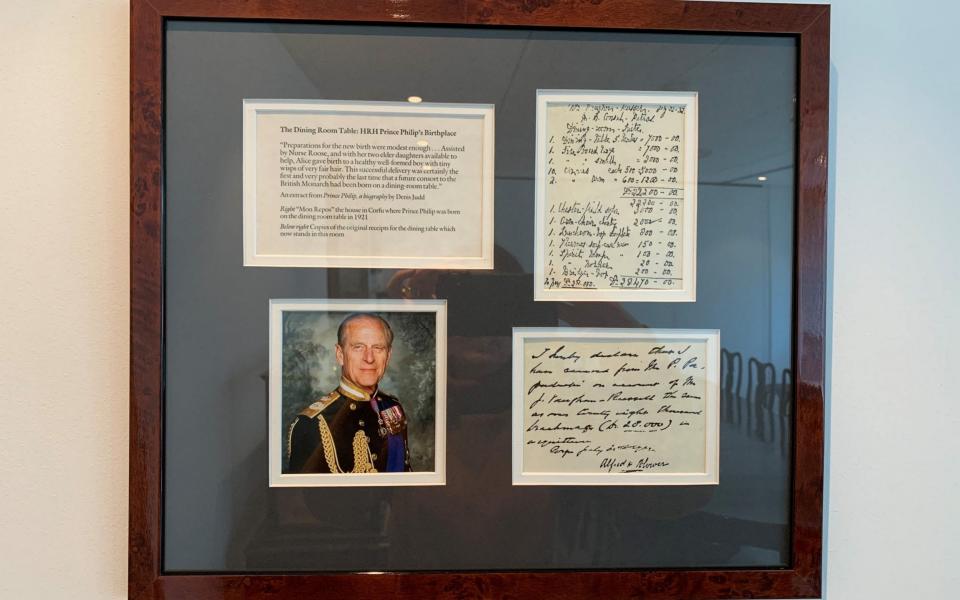 The Dining Room Table: HRH Prince Philip's Birthplace
"Preparations for the new birth were modest enough . . . Assisted
by Nurse Roose, and with her two elder daughters available to
help, Alice gave birth to a healthy well-formed boy with tiny
wisps of very fair hair. This successful delivery was certainly the
first and very probably the last time that a future consort to the
British Monarch had been born on a dining-room table."
An extract from Prince Philip, a biography by Denis Judd
Right "Mon Repos" the house in Corfu where Prince Philip was born
on the dining room table in 1921
Below right Copies of the original receipts for the dining table which
now stands in this room
Dining-room-Suite
1. Dining-Table = 7000-00.
1. = 7000-00.
1. " " = 2000-00.
10. each 500 : 5000-00.
2. " Arm = 600 = 1200-00.
22200-00.
22200-00.
1. 3000-00.
1. 2000-00.
1. 800-00.
1. 150-00.
1. 100-00.
1. 20-00.
1. 200-00.
28470-00.
I hereby declare that I
have received from Mr P.
on account of Mr
J. Vaughan-Russell the sum
as over twenty eight thousand
drachmas (Dr. 28.000) in
Alfred Blower